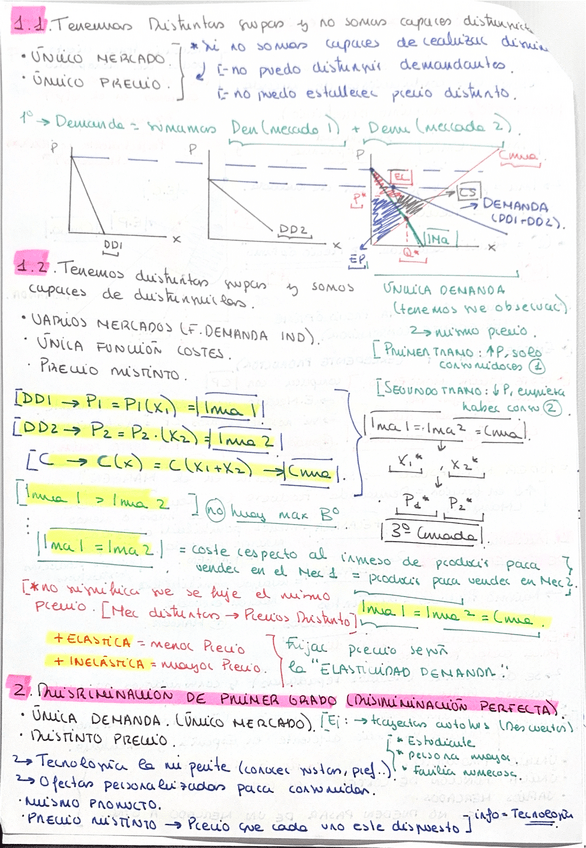 1.1. Tenemos Distintos grupos y no somos capaces distinguir
· ÚNICO MERCADO.
· ÚNICO PRECIO.
* si no somos capaces de realizar
[-no puedo distinguir demandantes.
[-no puedo establecer precio distinto.
1º → Demanda = sumamos Dem (mercado 1) + Dem (mercado 2).
P P P Cma
EL
P*
CS
DEMANDA
(DD1+DD2).
DD1 x DD2 x EP Q* IMa x
1.2. Tenemos distintos grupos y somos
capaces de distinguirlos.
· VARIOS MERCADOS (F. DEMANDA IND).
· ÚNICA FUNCIÓN COSTES.
· PRECIO DISTINTO.
ÚNICA DEMANDA
(tenemos que observar)
→ mismo precio.
[PRIMER TRAMO: ↑P, solo
consumidores ①
[SEGUNDO TRAMO: ↓P, empieza
haber cons ②
[DD1 → P1 = P1(X1) = Ima 1
[DD2 → P2 = P2·(X2) = Ima 2
[C → C(x) = C(x1+x2) → Cma.
Ima1 = Ima2 = Cma.
x1* , x2*
P1* P2*
3º Grado
[Ima 1 > Ima 2 ] no hay max Bº
Ima 1 = Ima 2 = coste respecto al ingreso de producir para
vender en el Mec 1 = producir para vender en Mec 2
[*no significa que se fije el mismo
precio. [Mec distintos → Precios Distinto]
Ima 1 = Ima 2 = Cma.
+ ELÁSTICA = menor Precio
+ INELÁSTICA = mayor Precio.
Fijar precio según
la "ELASTICIDAD DEMANDA".
2. DISCRIMINACIÓN DE PRIMER GRADO (DISCRIMINACIÓN PERFECTA).
· ÚNICA DEMANDA. (ÚNICO MERCADO). [Ej: → (Descuentos)
· DISTINTO PRECIO.
* Estudiante
* persona mayor.
* Familia numerosa.
→ Tecnología la permite (conocer gustos, pref.)
→ Ofertas personalizadas para consumidor.
· MISMO PRODUCTO.
· PRECIO DISTINTO → Precio que cada uno este dispuesto ] info = Tecnología